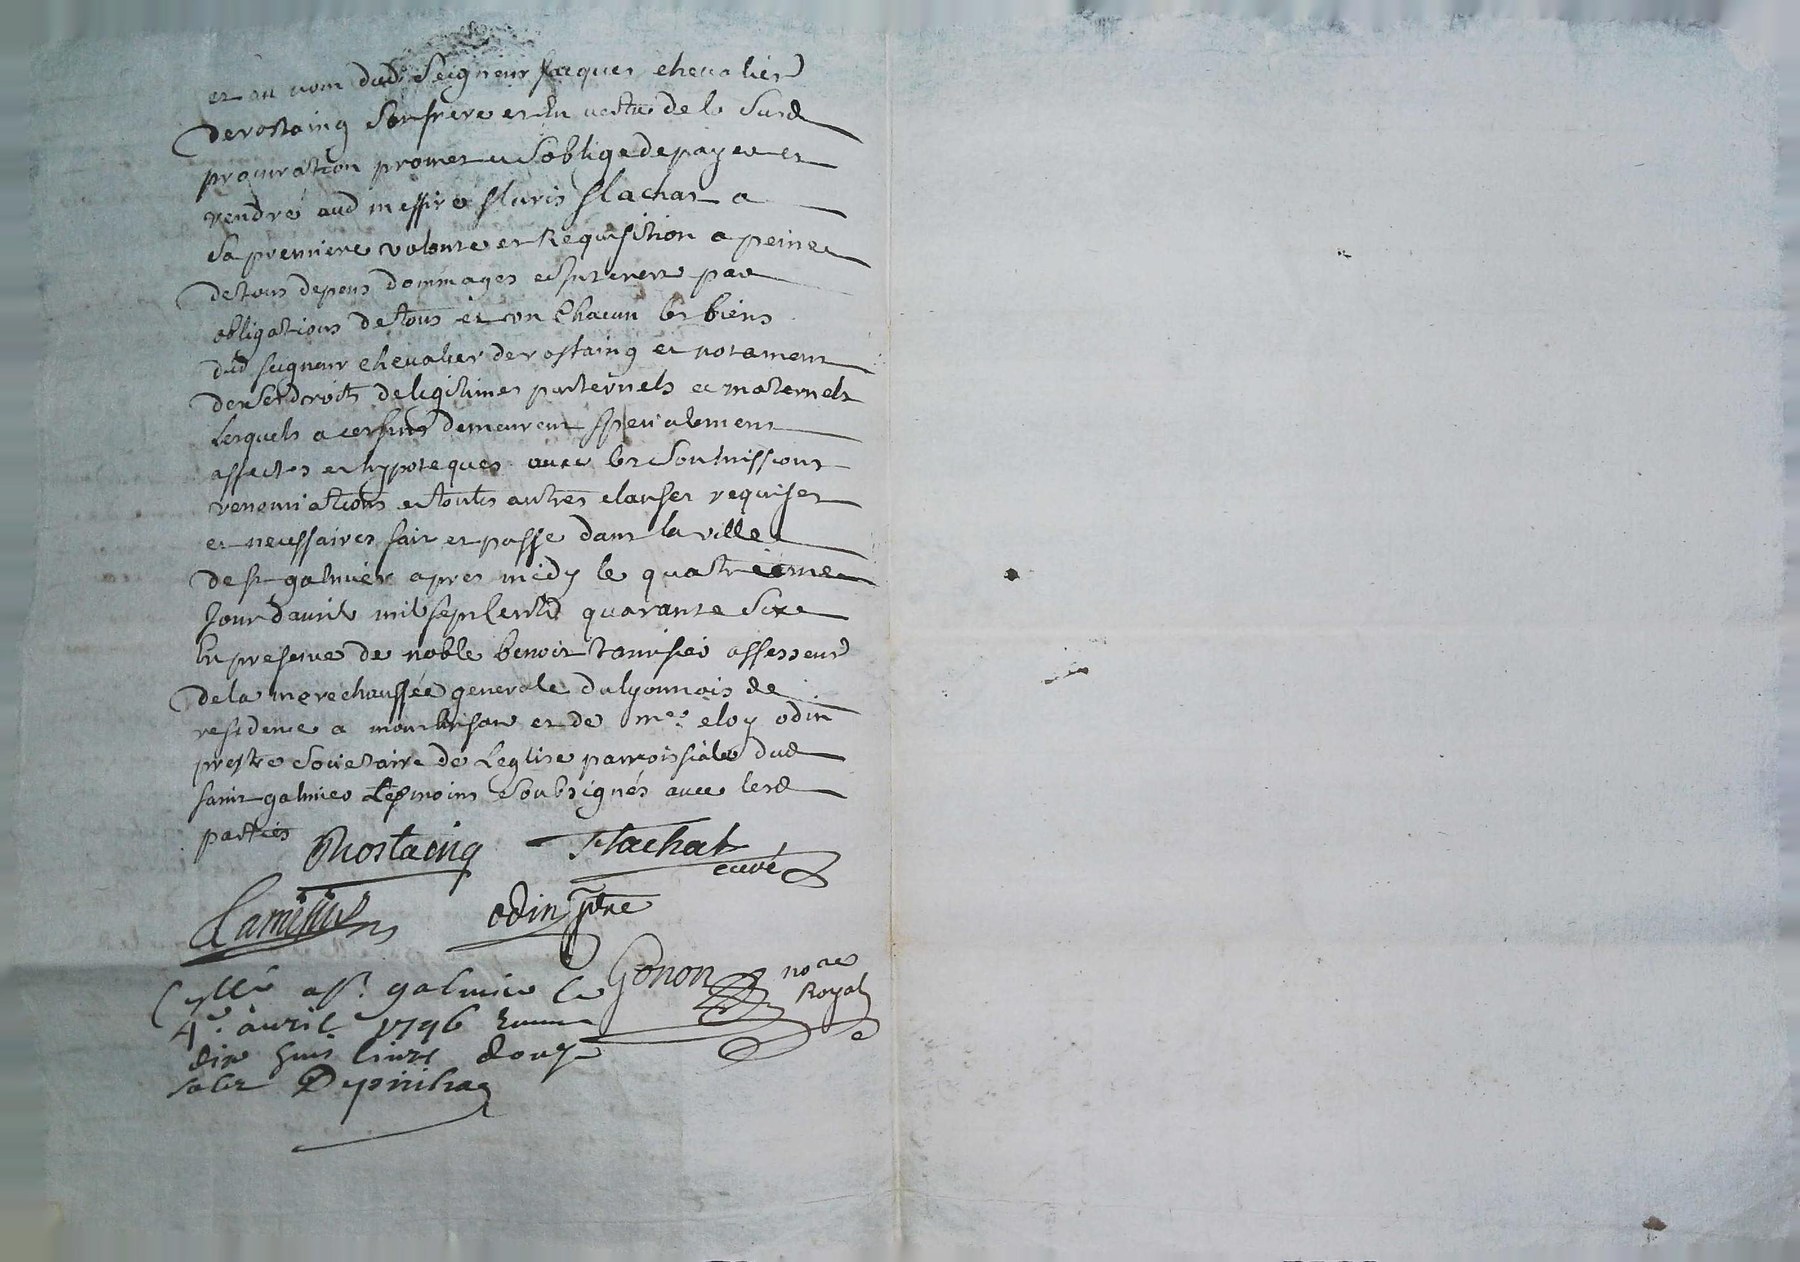 et au nom dud. Seigneur Jacques chevalier
de rostaing son frere et en vertu de la susd
procuration promet et s'oblige de payer et
rendre aud messire fluris flachat a
sa premiere volonte et Requisition a peine
de tous depens dommages et interets par
obligations de tous et un chacun les biens
dud seigneur chevalier de rostaing et notament
de ses droits de legitimes paternels et maternels
lesquels a ces fins demeurent specialement
affectes et hypoteques avec les soumissions
renonciations et toutes autres clauses requises
et necessaires fait et passe dans la ville
de st galmier apres midy le quatrieme
Jour d'avril mil sept cents quarante six
En presence de noble benoit tamisier assesseur
de la marechaussée generale du lyonnois de
residence a montbrison et de me. eloy odin
prestre societaire de L'eglise parroissiale dud
saint galmier tesmoins soubsignés avec lesd
parties Rhostaing flachat
curé
tamisier odin ptre
Gonon nore
Royal
Collé a st. galmier le
4e. avril 1746
dix huit livres douze
sols